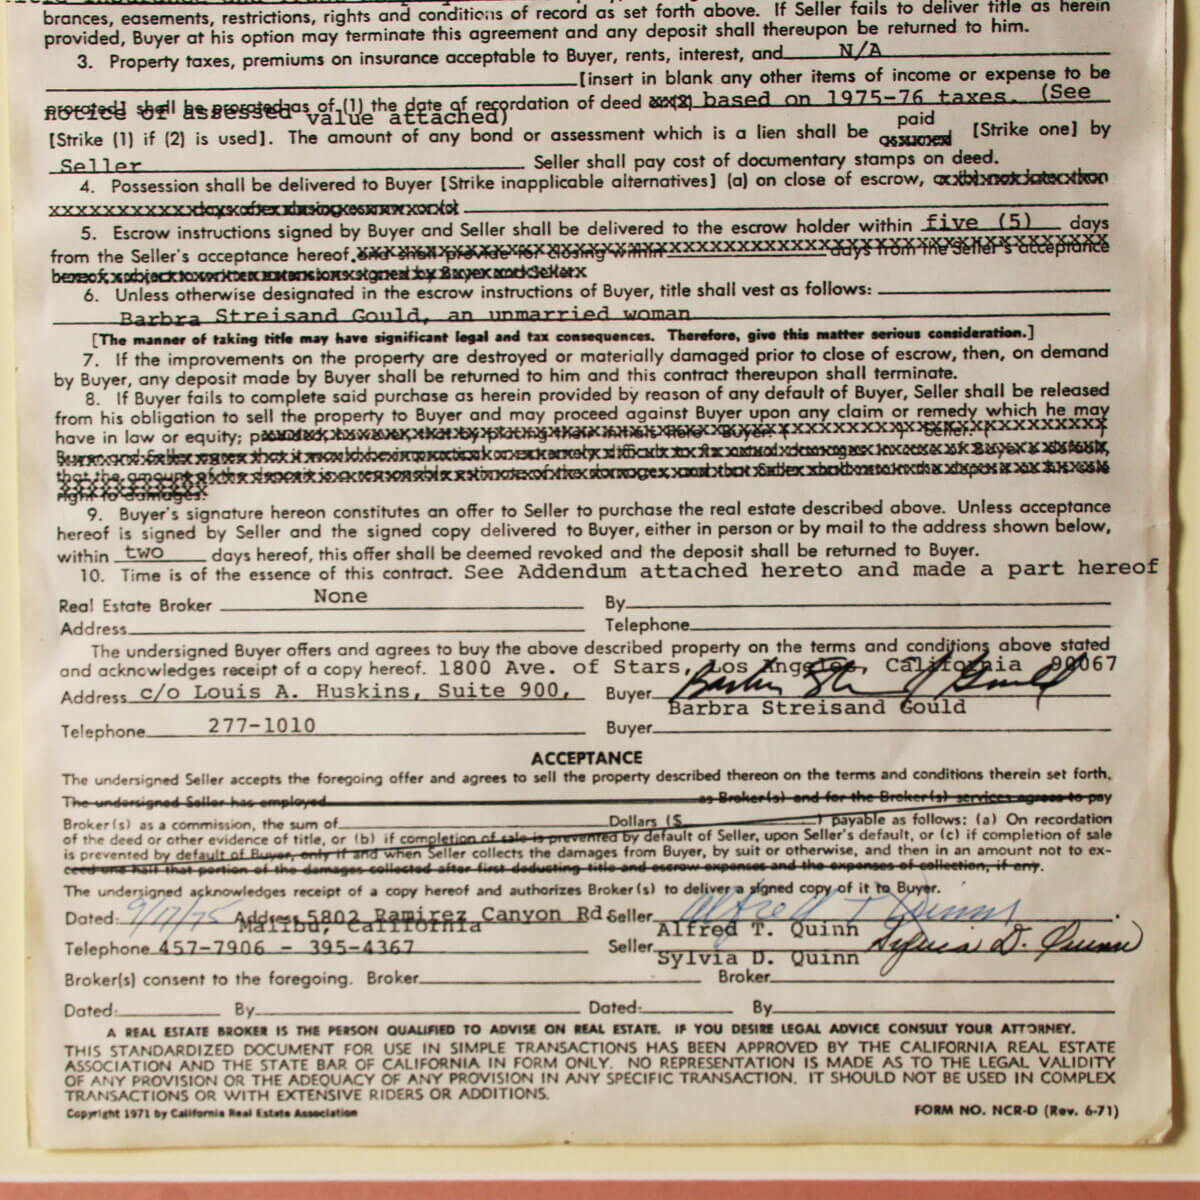 brances, easements, restrictions, rights and conditions of record as set forth above. If Seller fails to deliver title as herein
provided, Buyer at his option may terminate this agreement and any deposit shall thereupon be returned to him.
3. Property taxes, premiums on insurance acceptable to Buyer, rents, interest, and N/A
[insert in blank any other items of income or expense to be
prorated] shall be prorated as of (1) the date of recordation of deed based on 1975-76 taxes. (See
notice of assessed value attached)
paid
[Strike (1) if (2) is used]. The amount of any bond or assessment which is a lien shall be assumed [Strike one] by
Seller Seller shall pay cost of documentary stamps on deed.
4. Possession shall be delivered to Buyer [Strike inapplicable alternatives] (a) on close of escrow, or (b) not later than
days after closing escrow or (c)
5. Escrow instructions signed by Buyer and Seller shall be delivered to the escrow holder within five (5) days
from the Seller's acceptance hereof and shall provide for closing within days from the Seller's acceptance
hereof, subject to written extensions signed by Buyer and Seller
6. Unless otherwise designated in the escrow instructions of Buyer, title shall vest as follows:
Barbra Streisand Gould, an unmarried woman
[The manner of taking title may have significant legal and tax consequences. Therefore, give this matter serious consideration.]
7. If the improvements on the property are destroyed or materially damaged prior to close of escrow, then, on demand
by Buyer, any deposit made by Buyer shall be returned to him and this contract thereupon shall terminate.
8. If Buyer fails to complete said purchase as herein provided by reason of any default of Buyer, Seller shall be released
from his obligation to sell the property to Buyer and may proceed against Buyer upon any claim or remedy which he may
have in law or equity; provided, however, that by placing their initials here Buyer: ( ) Seller: (
that the amount
right to damages.
9. Buyer's signature hereon constitutes an offer to Seller to purchase the real estate described above. Unless acceptance
hereof is signed by Seller and the signed copy delivered to Buyer, either in person or by mail to the address shown below,
within two days hereof, this offer shall be deemed revoked and the deposit shall be returned to Buyer.
10. Time is of the essence of this contract. See Addendum attached hereto and made a part hereof
Real Estate Broker None By
Address Telephone
The undersigned Buyer offers and agrees to buy the above described property on the terms and conditions above stated
and acknowledges receipt of a copy hereof. 1800 Ave. of Stars, Los Angeles, California 90067
Address c/o Louis A. Huskins, Suite 900, Buyer Barbra Streisand Gould
Barbra Streisand Gould
Telephone 277-1010 Buyer
ACCEPTANCE
The undersigned Seller accepts the foregoing offer and agrees to sell the property described thereon on the terms and conditions therein set forth.
The undersigned Seller has employed as Broker(s) and for the Broker(s) services agrees to pay
Broker(s) as a commission, the sum of Dollars ($ ) payable as follows: (a) On recordation
of the deed or other evidence of title, or (b) if completion of sale is prevented by default of Seller, upon Seller's default, or (c) if completion of sale
is prevented by default of Buyer, only if and when Seller collects the damages from Buyer, by suit or otherwise, and then in an amount not to ex-
ceed one half that portion of the damages collected after first deducting title and escrow expenses and the expenses of collection, if any.
The undersigned acknowledges receipt of a copy hereof and authorizes Broker(s) to deliver a signed copy of it to Buyer.
Dated: 9/17/75 Address 5802 Ramirez Canyon Rd. Seller Alfred T Quinn
Malibu, California Alfred T. Quinn
Telephone 457-7906 - 395-4367 Seller Sylvia D. Quinn
Sylvia D. Quinn
Broker(s) consent to the foregoing. Broker Broker
Dated: By Dated: By
A REAL ESTATE BROKER IS THE PERSON QUALIFIED TO ADVISE ON REAL ESTATE. IF YOU DESIRE LEGAL ADVICE CONSULT YOUR ATTORNEY.
THIS STANDARDIZED DOCUMENT FOR USE IN SIMPLE TRANSACTIONS HAS BEEN APPROVED BY THE CALIFORNIA REAL ESTATE
ASSOCIATION AND THE STATE BAR OF CALIFORNIA IN FORM ONLY. NO REPRESENTATION IS MADE AS TO THE LEGAL VALIDITY
OF ANY PROVISION OR THE ADEQUACY OF ANY PROVISION IN ANY SPECIFIC TRANSACTION. IT SHOULD NOT BE USED IN COMPLEX
TRANSACTIONS OR WITH EXTENSIVE RIDERS OR ADDITIONS.
Copyright 1971 by California Real Estate Association FORM NO. NCR-D (Rev. 6-71)